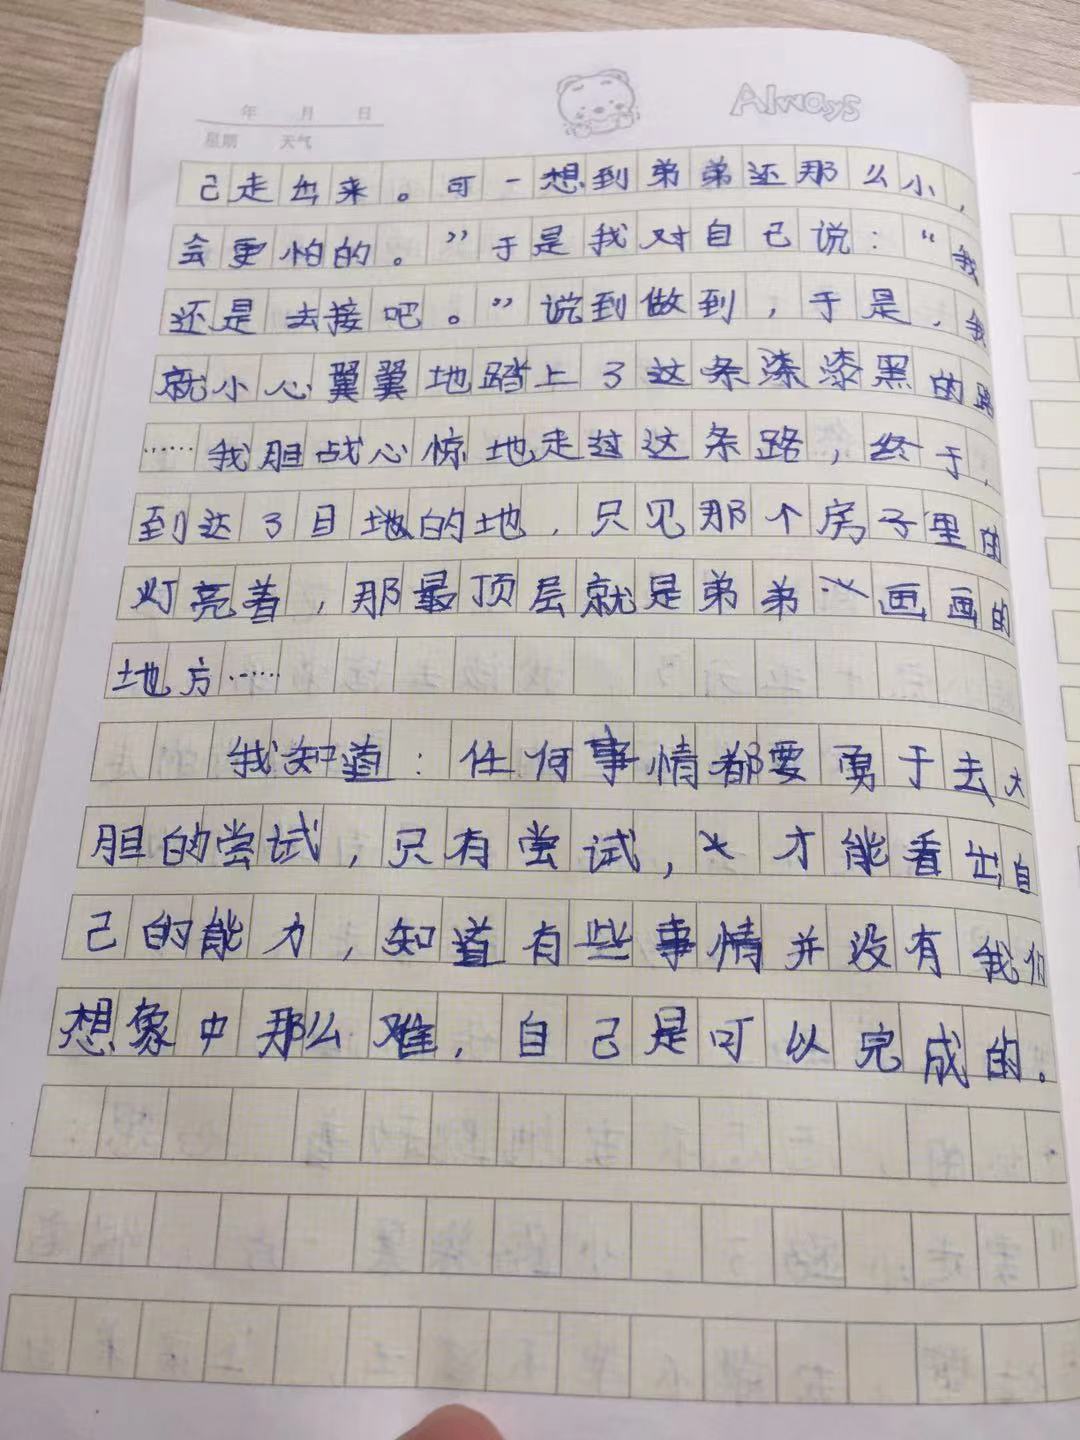 年 月 日
星期 天气
Always
己走出来。可一想到弟弟还那么小，
会更怕的。”于是我对自己说：“我
还是去接吧。”说到做到，于是，我
就小心翼翼地踏上了这条漆漆黑的路
……我胆战心惊地走过这条路，终于，
到达了目地的地，只见那个房子里的
灯亮着，那最顶层就是弟弟画画的
地方……
我知道：任何事情都要勇于去大
胆的尝试，只有尝试，才能看出自
己的能力，知道有些事情并没有我们
想象中那么难，自己是可以完成的。